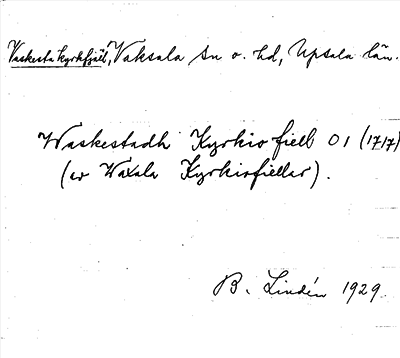 Vaskesta kyrkfjäll, Vaksala sn o. hd, Upsala län.
Waskestadh Kyrkio fiell 01 (1717)
(av Waxala Kyrkiofiellar).
B. Lindén 1929.